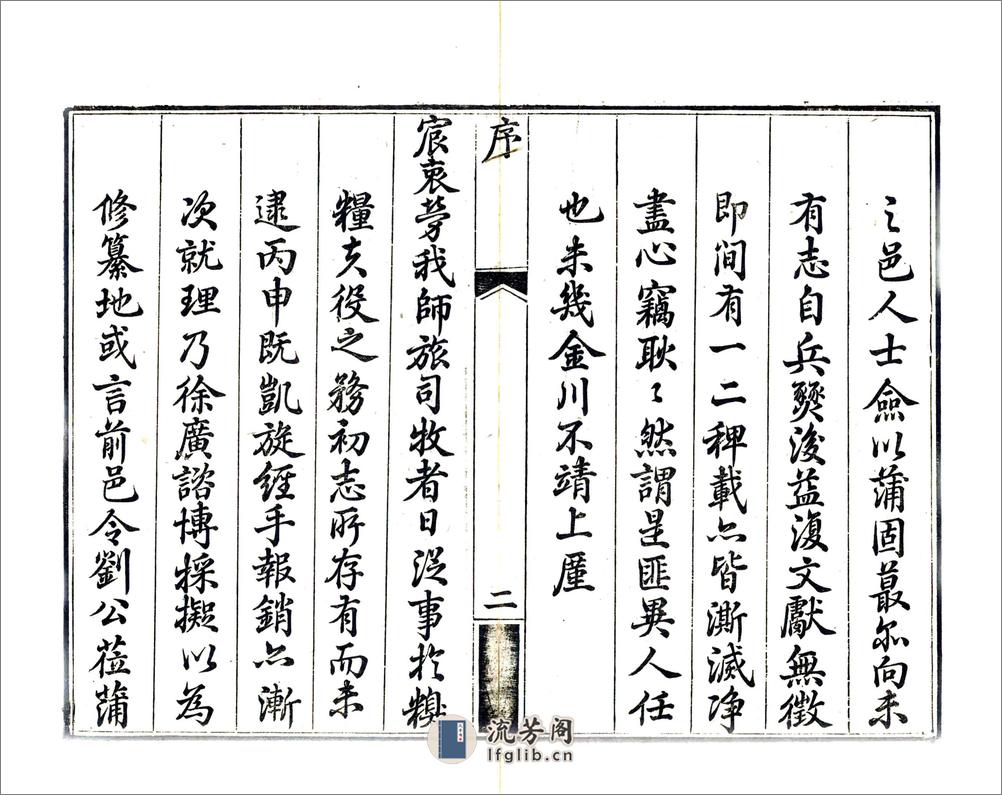 之邑人士僉以蒲固蕞爾向未
有志自兵燹後益復文獻無徵
即间有一二稗載亦皆澌滅净
盡心竊耿〻然謂是匪異人任
也未幾金川不靖上廑
序
二
宸衷勞我師旅司牧者日從事於糗
糧夫役之務初志所存有而未
逮丙申既凱旋經手報銷亦漸
次就理乃徐廣諮博採擬以為
修纂地或言前邑令劉公蒞蒲
流芳阁
lfglib.cn